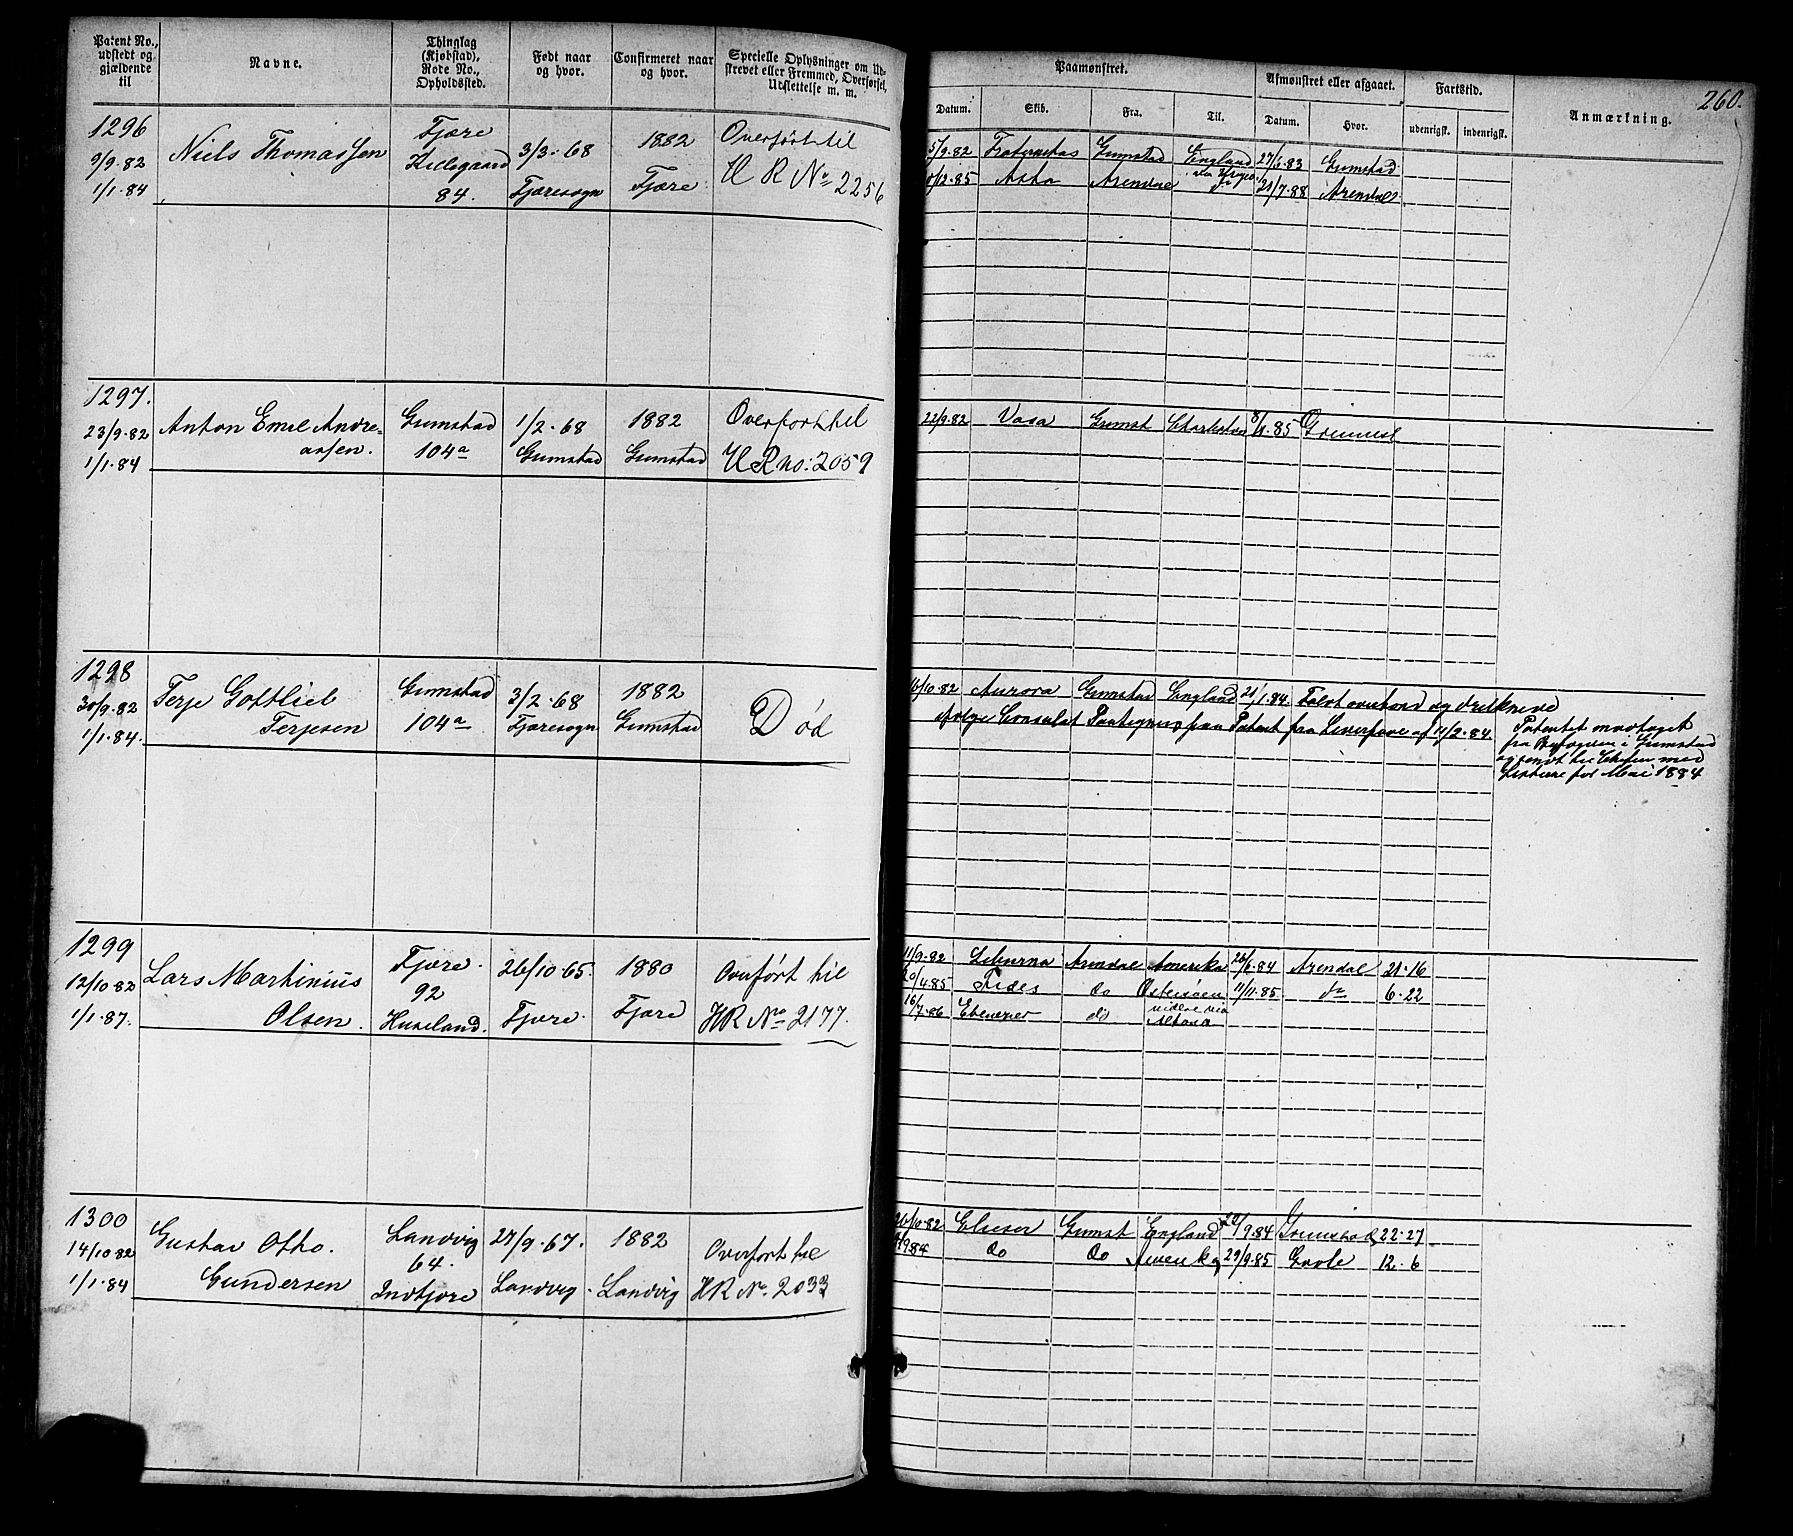 Patent No., udstedt og gjældende til
Navne.
Thinglag (Kjøbstad), Rode No., Opholdssted.
Født naar og hvor.
Confirmeret naar og hvor.
Specielle Oplysninger om Udskrevet eller Fremmed, Overførsel, Udslettelse m. m.
Paamønstret.
Datum.
Skib.
Fra.
Til.
Afmønstret eller afgaaet.
Datum.
Hvor.
Fartstid.
udenrigsk.
indenrigsk.
Anmærkning.
260.
1296
9/9.82
1/1.84
Niels Thomassen
Fjære
84.
3/3.68
Fjæresogn
1882
Fjære
Overført til
H R No 2256
5/9.82 Grimstad England 83 Grimstad
85 Asta Arendal do 21/7.88 Arendal
1297.
23/9.82
1/1.84
Anton Emil Andre=
assen.
Grimstad
104a
1/2.68
Grimstad
1882
Grimstad
Overført til
H R no: 2059
22/9.82 Vasa Grimst Charleston 85 Grimst
1298
30/9.82
1/1.84.
Terje Gottlieb
Terjesen
Grimstad
104a
3/2.68
Fjæresogn
1882
Grimstad
Død
16/10.82 Aurora Grimstad England 21/1.84. Faldt overbord og druknede
ifølge Consulat Paategning paa Patent fra Liverpool af 11/2.84.
Patentet modtaget
fra Byfogden i Grimstad
og sendt til Chefen med
Listerne for Mai 1884
1299
12/10.82
1/1.87.
Lars Martinius
Olsen.
Fjære.
92
Huseland.
26/10.65.
Fjære.
1880
Fjære
Overført til
HR No 2177.
11/9.82 Liburna Arendal Amerika 84 Arendal 21.16
20/4.85 Fides do Østersøen 11/11.85 do 6.22
16/7.86 Ebenezer do videre via
Altona
1300
14/10.82
1/1.84
Gustav Otho.
Gundersen
Landvig
64.
Indfjore
27/9.67.
Landvig.
1882
Landvig
Overført til
HR No. 2033
26/10.82 Elieser Grimst England 22/9.84 Grimstad 22.27
9.84 do do 29/9.85 Goole 12.6